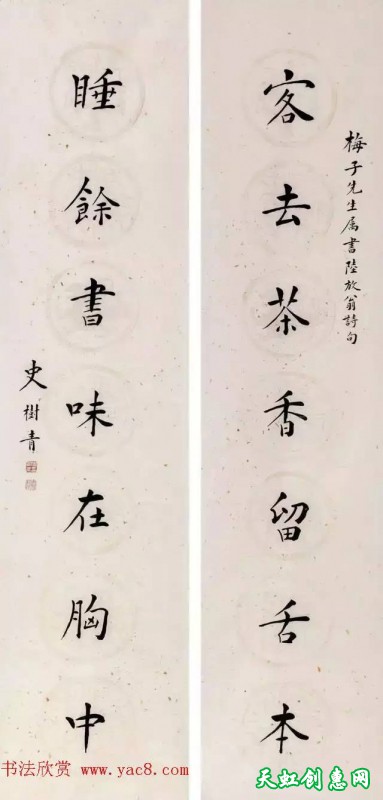 梅子先生属書陸放翁詩句
客去茶香留舌本
睡餘書味在胸中
史樹青
书法欣赏 www.yac8.com
天虹创惠网